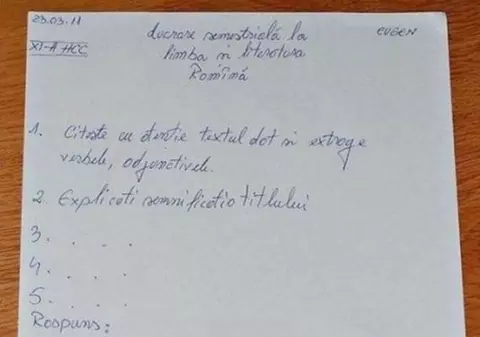 23.03.11
XI-A HCC
EUGEN
Lucrare semestrială la
limba si literatura
Romînă
1. Citeste cu atentie textul dat si extrage
verbele, adjunctivele.
2. Explicati semnificatia titlului
3. . . . .
4. . . . .
5. . . . .
Raspuns: